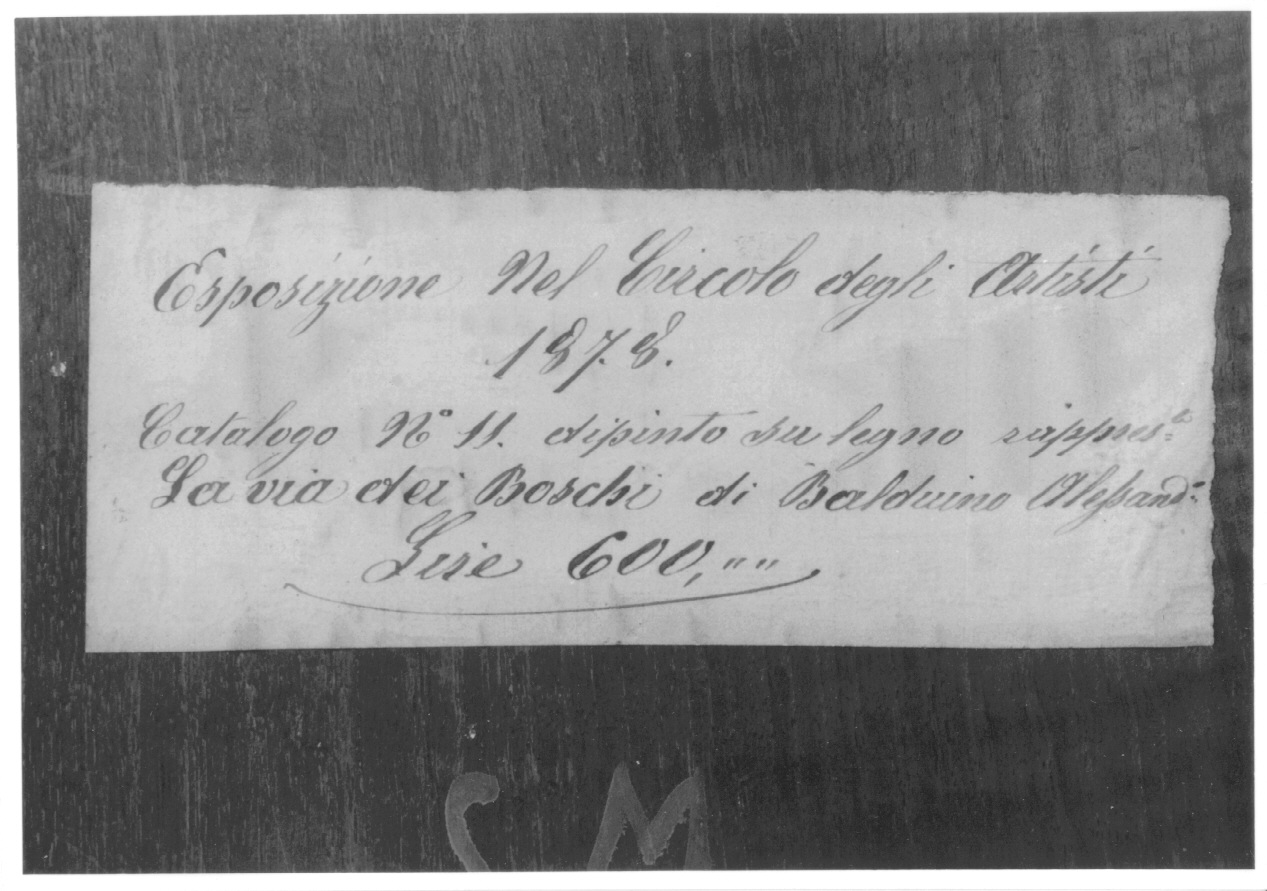 Esposizione Nel Circolo degli Artisti
1878.
Catalogo N° 11. dipinto su legno rappres.ª
La via dei Boschi di Balduino Alessand.º
Lire 600,""
C M